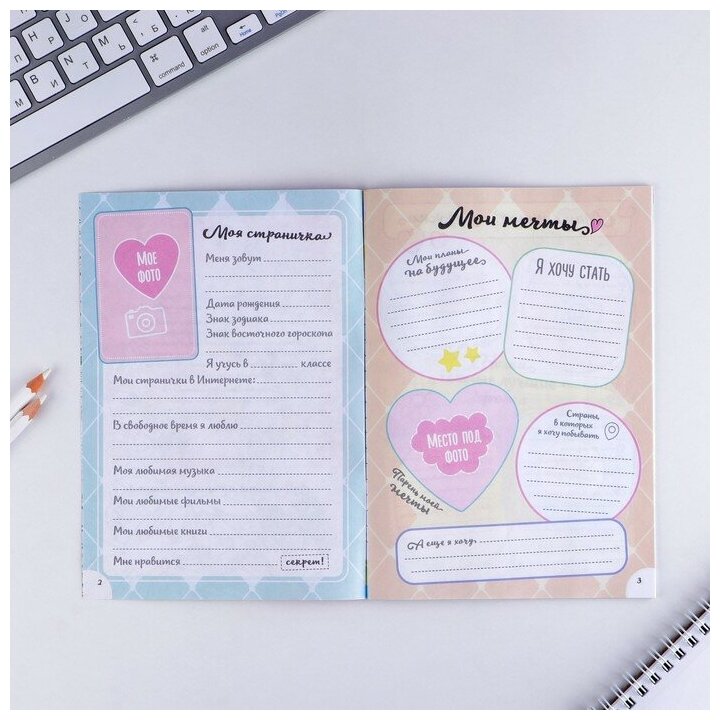 Ю
Б
Ь
Т
И
М
alt
option
⌘
command
Home
PgDn
Моя страничка
Мое
фото
Меня зовут
Дата рождения
Знак зодиака
Знак восточного гороскопа
Я учусь в классе
Мои странички в Интернете:
В свободное время я люблю
Моя любимая музыка
Мои любимые фильмы
Мои любимые книги
Мне нравится секрет!
2
Мои мечты
Мои планы
на будущее
Я хочу стать
Место под
фото
Парень моей
мечты
Страны,
в которых
я хочу побывать
А еще я хочу
3